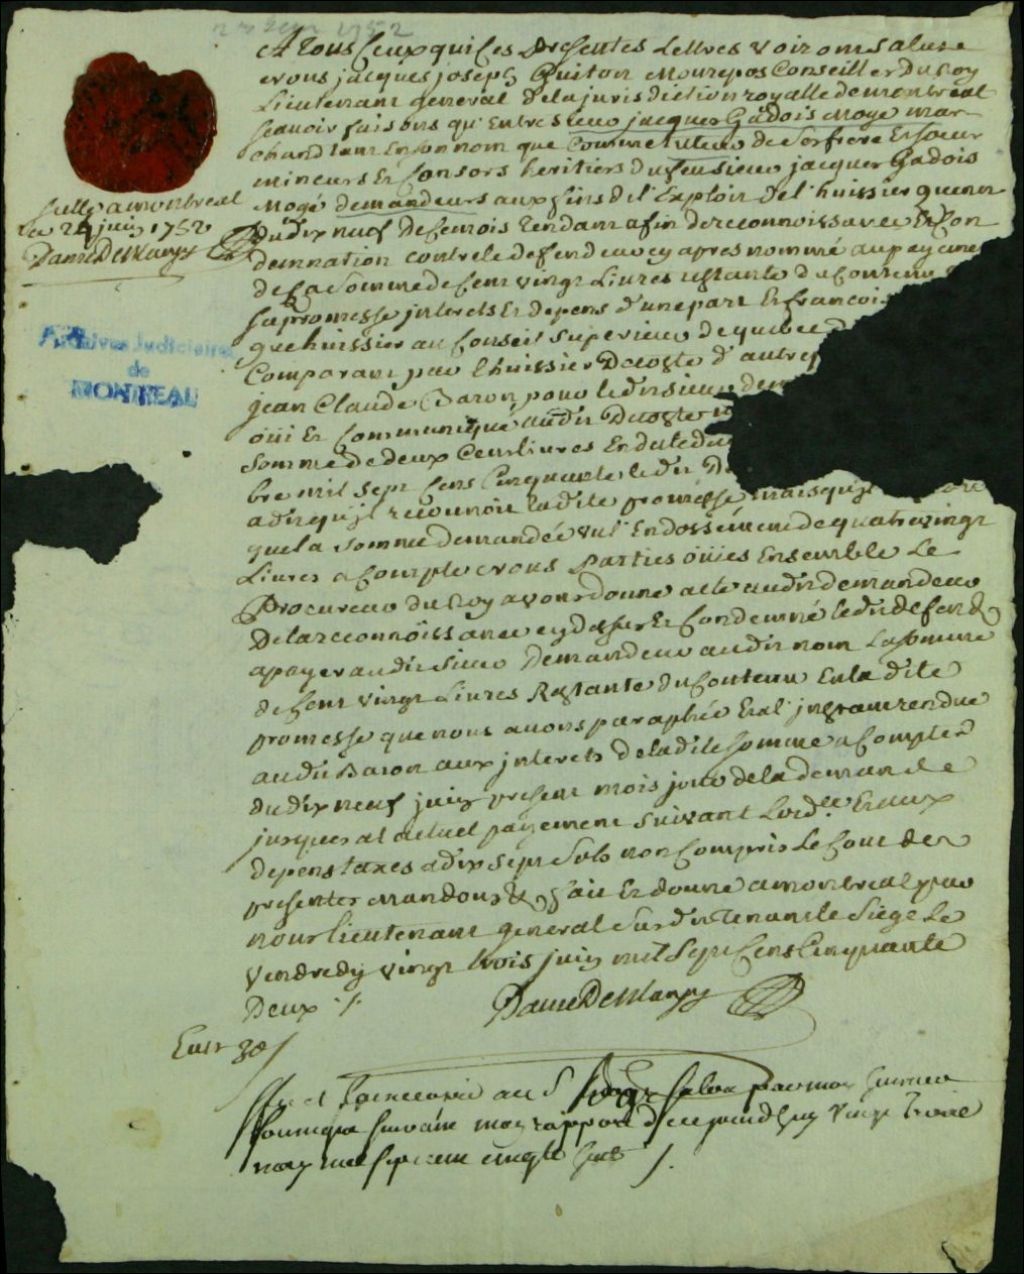 23 juin 1752
A Tous Ceux qui Ces Presentes Lettres Voiront Salut
nous jacques joseph Guiton Monrepos Conseiller du Roy
Lieutenant general de la jurisdiction royalle de montreal
scavoir faisons qu'Entre sieur jacques Gadois Mogé mar-
chand tant En son nom que Comme tuteur de Ses frere Et soeur
mineurs Et Consors heritiers du feu sieur jacques Gadois
Mogé demandeurs aux fins de l'Exploit de l'huissier
du dix neuf de ce mois Tendant afin de reconnoissance Et Con
demnation contre le defendeur cy apres nommé au payement
de la Somme de Cent vingt Livres restante du Contenu
sa promesse jnterets Et depens d'une part Et francois
huissier au Conseil Superieur de quebec
Comparant par l'huissier Decoste d'autre
jean Claude Baron pour le dit sieur dem
oüi Et Communiqué audit Decoste
Somme de deux Cent livres En date du
bre mil Sept Cens Cinquante ledit De
a dit qu'jl reconnoit ladite promesse mais qu'jl
que la somme demandée vu l'Endossement de quatre vingt
Livres a Compte nous Parties oüies Ensemble Le
Procureur du Roy avons donné acte audit demandeur
De la reconnoissance cy dessus Et Condemné ledit defend.
a payer audit Sieur Demandeur audit nom La somme
de Cent vingt Livres Restante du Contenu En la dite
promesse que nous avons paraphée Et a l'jnstant rendue
audit Baron aux jnterets de la dite somme a Compter
du dix neuf juin present mois jour de la demande
jusques a l'actuel payement Suivant L'ord.ce Et aux
depens taxes a dix sept Sols non Compris Le Cout des
presentes mandons &c fait Et donné a montreal par
nous lieutenant general Susdit Tenant le Siège Le
Vendredy vingt trois juin mil Sept Cens Cinquante
Deux ./.
Danré De Blanzy
Scellé a montreal
Le 24 juin 1752
Danré De Blanzy
Archives Judiciaires
de
MONTREAL